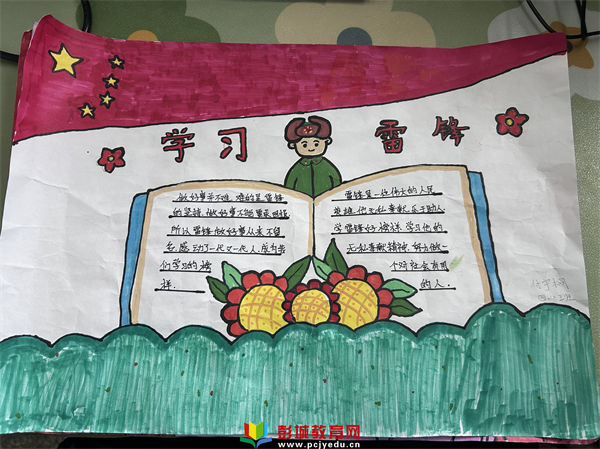 学习 雷锋
做好事并不难，难的是雷锋
的坚持，做好事不能重求回报
所以雷锋做好事从来不留
名，感动了一代又一代人，成为我
们学习的榜
样.
雷锋是一位伟大的人民
英雄，他无私奉献，乐于助人
学雷锋好榜样，学习他的
无私奉献精神，努力做一
个对社会有用
的人.
彭城教育网
www.pcjyedu.cn